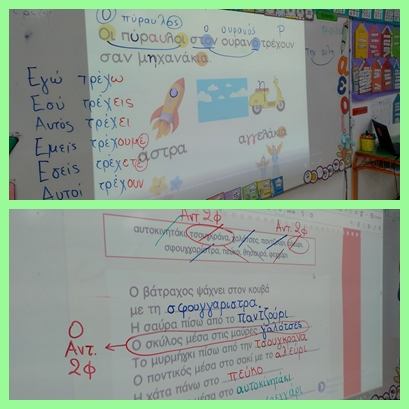 Ο πύραυλος ο ουρανός
Οι πύραυλοι στον ουρανό τρέχουν
σαν μηχανάκια.
Εγώ τρέχω
Εσύ τρέχεις
Αυτός τρέχει
Εμείς τρέχουμε
Εσείς τρέχετε
Αυτοί τρέχουν
άστρα
αγγελάκια
Αντ. 2φ
Αντ. 2φ
αυτοκινητάκι, τσουγκράνα, γαλότσες, παντζούρι, αλεύρι,
σφουγγαρίστρα, πεύκο, θησαυρό, φεγγάρι
Ο βάτραχος ψάχνει στον κουβά
με τη σφουγγαριστρα.
Η σαύρα πίσω από το παντζούρι
Ο σκύλος μέσα στις μαύρες γαλότσες
Το μυρμήγκι πίσω από την τσουγκράνα
Ο ποντικός μέσα στο σακί με το αλεύρι
Η χάτα πάνω στο πεύκο
μέσα στο αυτοκινητάκι
φεγγάρι
Ο
Αντ.
2φ